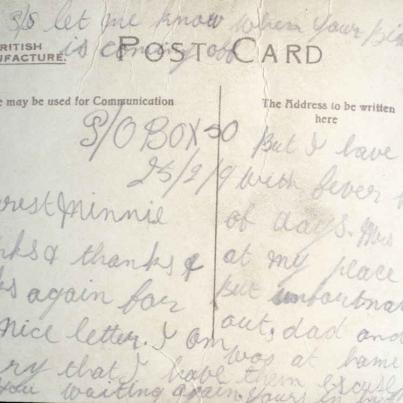 P/S let me know when your
is coming off
BRITISH
UFACTURE.
POST CARD
e may be used for Communication
The Address to be written
here
P/O BOX 50
25/2/9
rest Minnie
nks & thanks &
ks again for
nice letter. I am
ry that I have
You waiting again
But I have
with fever
of days. Mrs
at my place
but unfortunat
out, dad and
was at home
them excuse
yours in